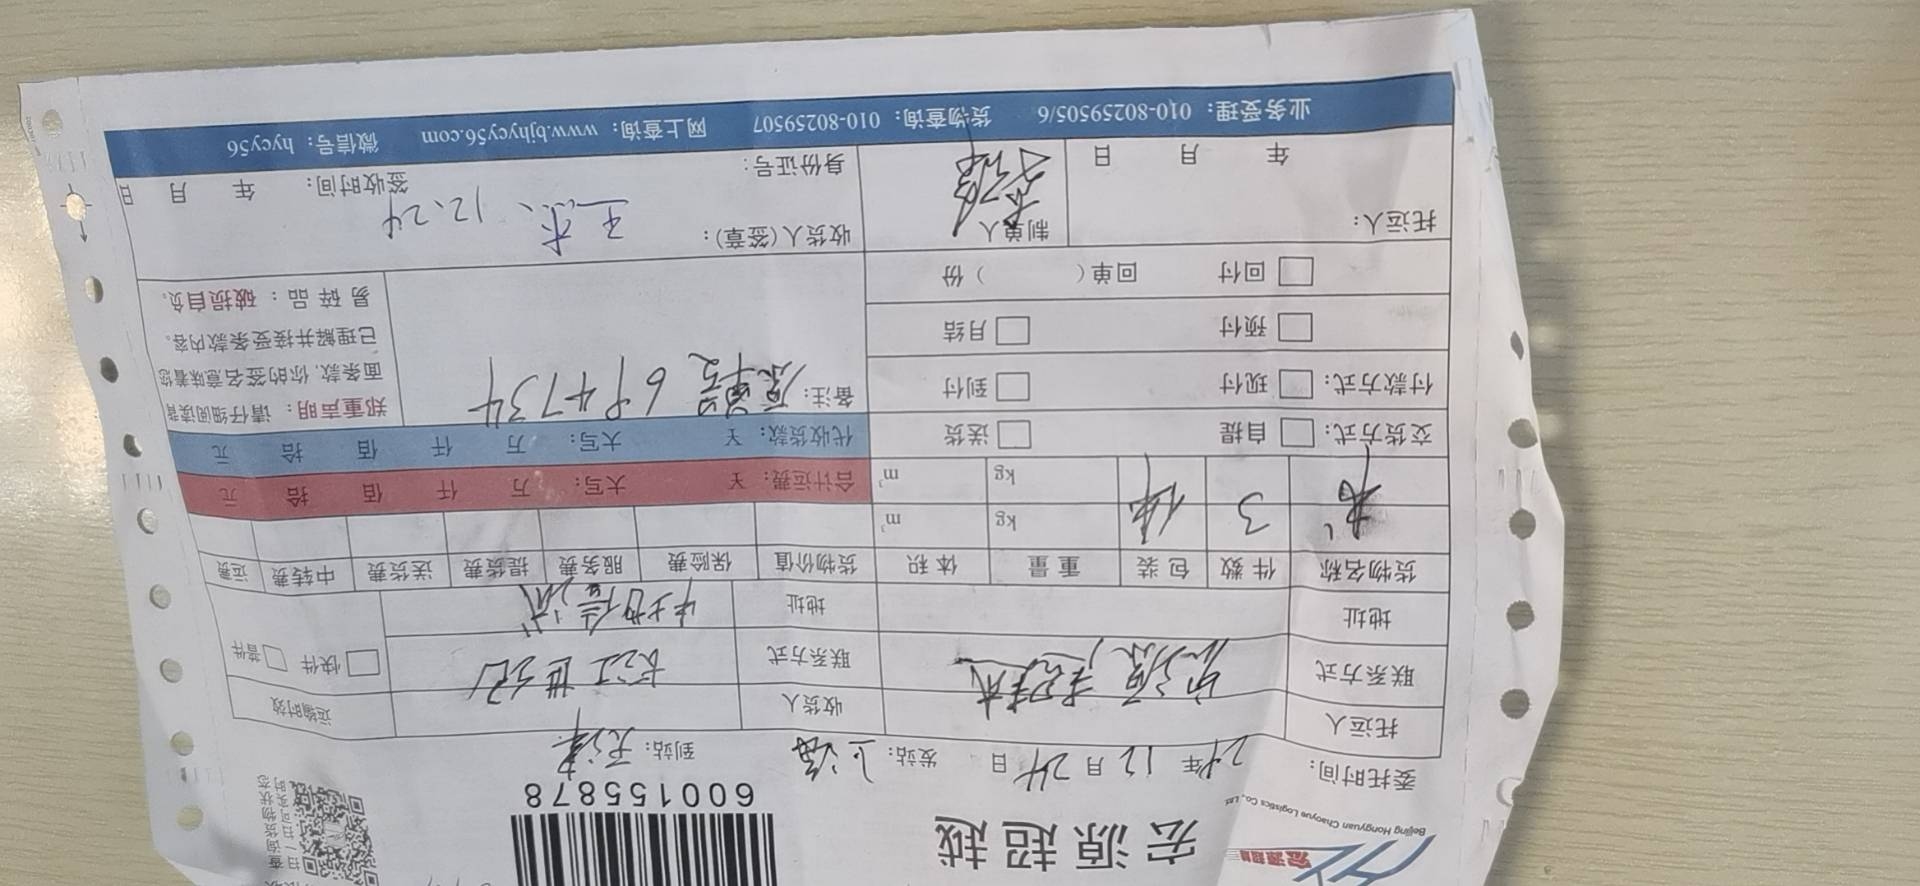 宏源超越
Beijing Hongyuan Chaoyue Logistics Co., Ltd.
600155878
扫一扫可实时
查询货物状态
委托时间： 24年 12月 24日 发站：上海 到站：天津
托运人 宏源超越 收货人 长江世纪 运输时效
联系方式 联系方式 快件 普件
地址 地址
货物名称 件数 包装 重量 体积 货物价值 保险费 服务费 提货费 送货费 中转费 运费
3 kg m³
kg m³ 合计运费：￥ 大写： 万 仟 佰 拾 元
交货方式： 自提 送货 代收货款：￥ 大写： 万 仟 佰 拾 元
付款方式： 现付 到付 备注：原单号 694734
预付 月结
回付 回单（ ）份
郑重声明：请仔细阅读背
面条款，你的签名意味着您
已理解并接受条款内容。
易碎品：破损自负。
托运人： 制单人 收货人（签章）： 12.24 签收时间： 年 月 日
年 月 日 身份证号：
业务受理：010-80259505/6 货物查询：010-80259507 网上查询：www.bjhycy56.com 微信号：hycy56